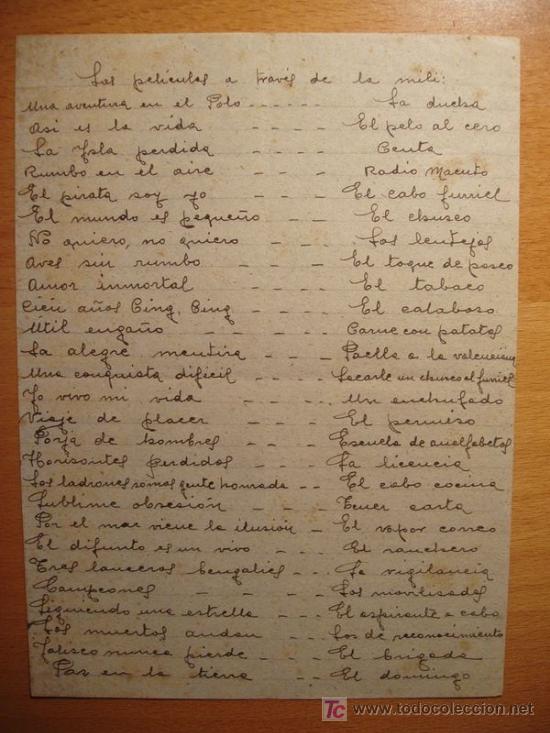 Las películas a través de la mili:
Una aventura en el Polo - - - - - La ducha
Así es la vida - - - - El pelo al cero
La Isla perdida - - - - Ceuta
Rumbo en el aire - - - Radio Macuto
El pirata soy yo - - - El cabo furriel
El mundo es pequeño - - - El chusco
No quiero, no quiero - - - Las lentejas
Aves sin rumbo - - - El toque de paseo
Amor inmortal - - - - El tabaco
Cien años Cing, Cing - - - El calaboso
Util engaño - - - - - Carne con patatas
La alegre mentira - - - - Paella a la valenciana
Una conquista difícil - - - - Sacarle un chusco al furriel
Yo vivo mi vida - - - Un enchufado
Viaje de placer - - - - El permiso
Forja de hombres - - - - Escuela de analfabetos
Horisontes perdidos - - - La licencia
Los ladrones somos gente honrada - - El cabo cocina
Sublime obsesión - - - Tener carta
Por el mar viene la ilusión - El vapor correo
El difunto es un vivo - - - El ranchero
Tres lanceros bengalies - - - La vigilancia
Campeones - - - - Los movilisados
Siguiendo una estrella - - - El aspirante a cabo
Los muertos andan - - - Los de reconocimiento
Jalisco nunca pierde - - - El brigada
Paz en la tierra - - - El domingo
TC www.todocoleccion.net